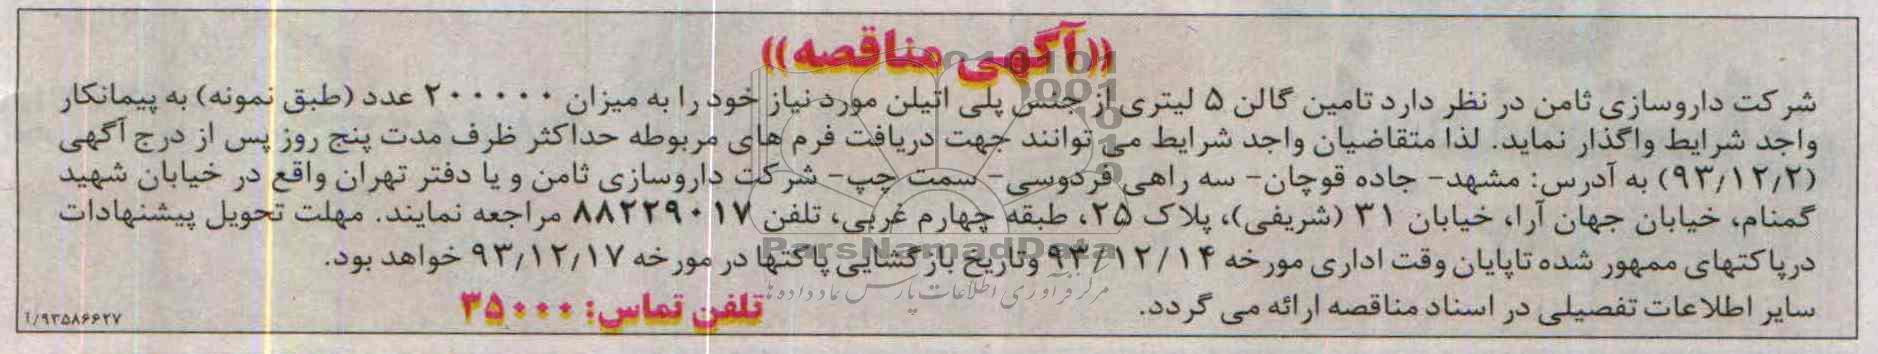 «آگهی مناقصه»
شرکت داروسازی ثامن در نظر دارد تامین گالن ۵ لیتری از جنس پلی اتیلن مورد نیاز خود را به میزان ۲۰۰۰۰۰ عدد (طبق نمونه) به پیمانکار
واجد شرایط واگذار نماید. لذا متقاضیان واجد شرایط می توانند جهت دریافت فرم های مربوطه حداکثر ظرف مدت پنج روز پس از درج آگهی
(۹۳/۱۲/۲) به آدرس: مشهد- جاده قوچان- سه راهی فردوسی- سمت چپ- شرکت داروسازی ثامن و یا دفتر تهران واقع در خیابان شهید
گمنام، خیابان جهان آرا، خیابان ۳۱ (شریفی)، پلاک ۲۵، طبقه چهارم غربی، تلفن ۸۸۲۲۹۰۱۷ مراجعه نمایند. مهلت تحویل پیشنهادات
درپاکتهای ممهور شده تاپایان وقت اداری مورخه ۹۳/۱۲/۱۴ وتاریخ بازگشایی پاکتها در مورخه ۹۳/۱۲/۱۷ خواهد بود.
سایر اطلاعات تفصیلی در اسناد مناقصه ارائه می گردد.
تلفن تماس: ۳۵۰۰۰
آ/۹۳۵۸۶۶۲۷
ParsNamadData
مرکز فرآوری اطلاعات پارس نماد داده ها